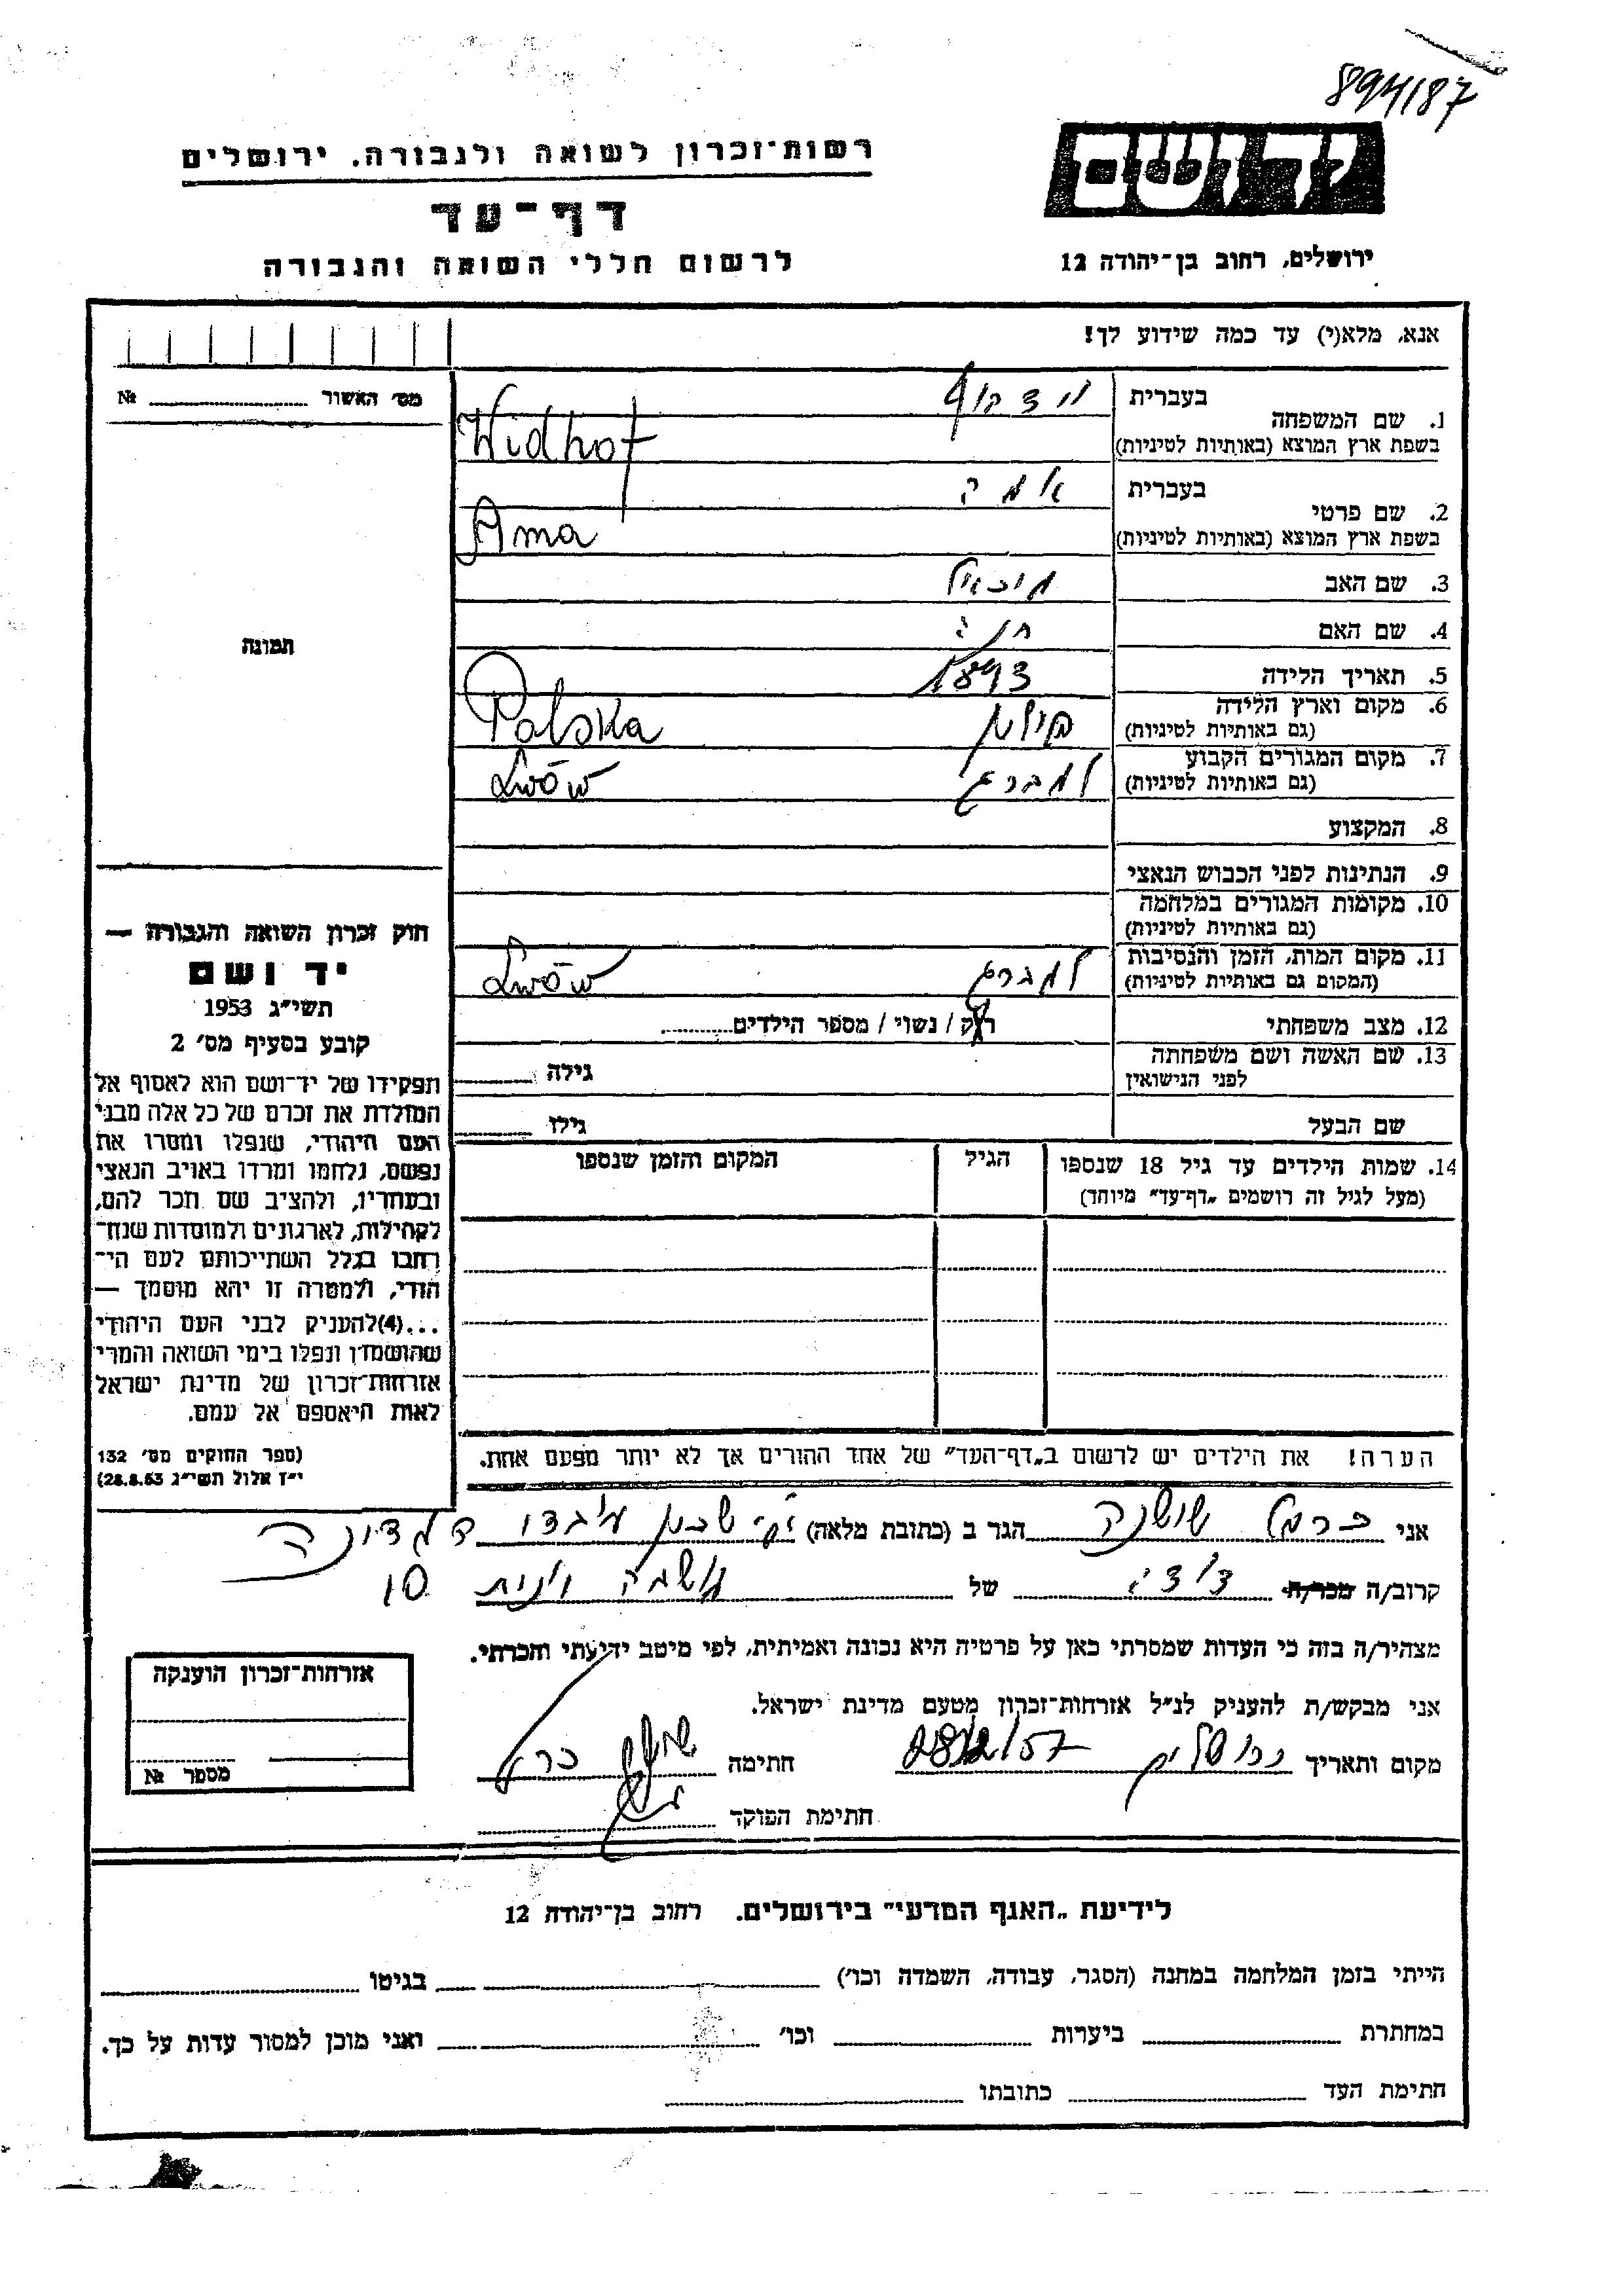 894/87
יד ושם
ירושלים, רחוב בן-יהודה 12
רשות-זכרון לשואה ולגבורה, ירושלים
דף-עד
לרשום חללי השואה והגבורה
אנא, מלא(י) עד כמה שידוע לך!
מס׳ האשור № 
1. שם המשפחה
בעברית
בשפת ארץ המוצא (באותיות לטיניות)
Widhof
2. שם פרטי
בעברית אמה
בשפת ארץ המוצא (באותיות לטיניות) Ama
3. שם האב מיכאל
4. שם האם חנה
5. תאריך הלידה 1893
6. מקום וארץ הלידה
(גם באותיות לטיניות) פולין Polska
7. מקום המגורים הקבוע
(גם באותיות לטיניות) למברג Lwów
8. המקצוע
9. הנתינות לפני הכבוש הנאצי
10. מקומות המגורים במלחמה
(גם באותיות לטיניות)
11. מקום המות, הזמן והנסיבות
(המקום גם באותיות לטיניות) למברג Lwów
12. מצב משפחתי רוק / נשוי / מספר הילדים
13. שם האשה ושם משפחתה
לפני הנישואין גילה
שם הבעל גילו
14. שמות הילדים עד גיל 18 שנספו
(מעל לגיל זה רושמים „דף-עד״ מיוחד)
הגיל
המקום והזמן שנספו
הערה! את הילדים יש לרשום ב„דף-העד״ של אחד ההורים אך לא יותר מפעם אחת.
תמונה
חוק זכרון השואה והגבורה —
יד ושם
תשי״ג 1953
קובע בסעיף מס׳ 2
תפקידו של יד-ושם הוא לאסוף אל
המולדת את זכרם של כל אלה מבני
העם היהודי, שנפלו ומסרו את
נפשם, נלחמו ומרדו באויב הנאצי
ובעוזריו, ולהציב שם וזכר להם,
לקהילות, לארגונים ולמוסדות שנח-
רבו בגלל השתייכותם לעם הי-
הודי, ולמטרה זו יהא מוסמך —
...(4) להעניק לבני העם היהודי
שהושמדו ונפלו בימי השואה והמרי
אזרחות-זכרון של מדינת ישראל
לאות היאספם אל עמם.
(ספר החוקים מס׳ 132
י״ז אלול תשי״ג 28.8.53)
אני כרמל שושנה הגר ב (כתובת מלאה)
קרוב/ה מכר/ה של
10
מצהיר/ה בזה כי העדות שמסרתי כאן על פרטיה היא נכונה ואמיתית, לפי מיטב ידיעתי והכרתי.
אני מבקש/ת להעניק לנ״ל אזרחות-זכרון מטעם מדינת ישראל.
מקום ותאריך ירושלים חתימה
חתימת הפוקד
אזרחות-זכרון הוענקה
מספר №
לידיעת „האגף המדעי״ בירושלים. רחוב בן-יהודה 12
הייתי בזמן המלחמה במחנה (הסגר, עבודה, השמדה וכו׳) בגיטו
במחתרת ביערות וכו׳ ואני מוכן למסור עדות על כך.
חתימת העד כתובתו